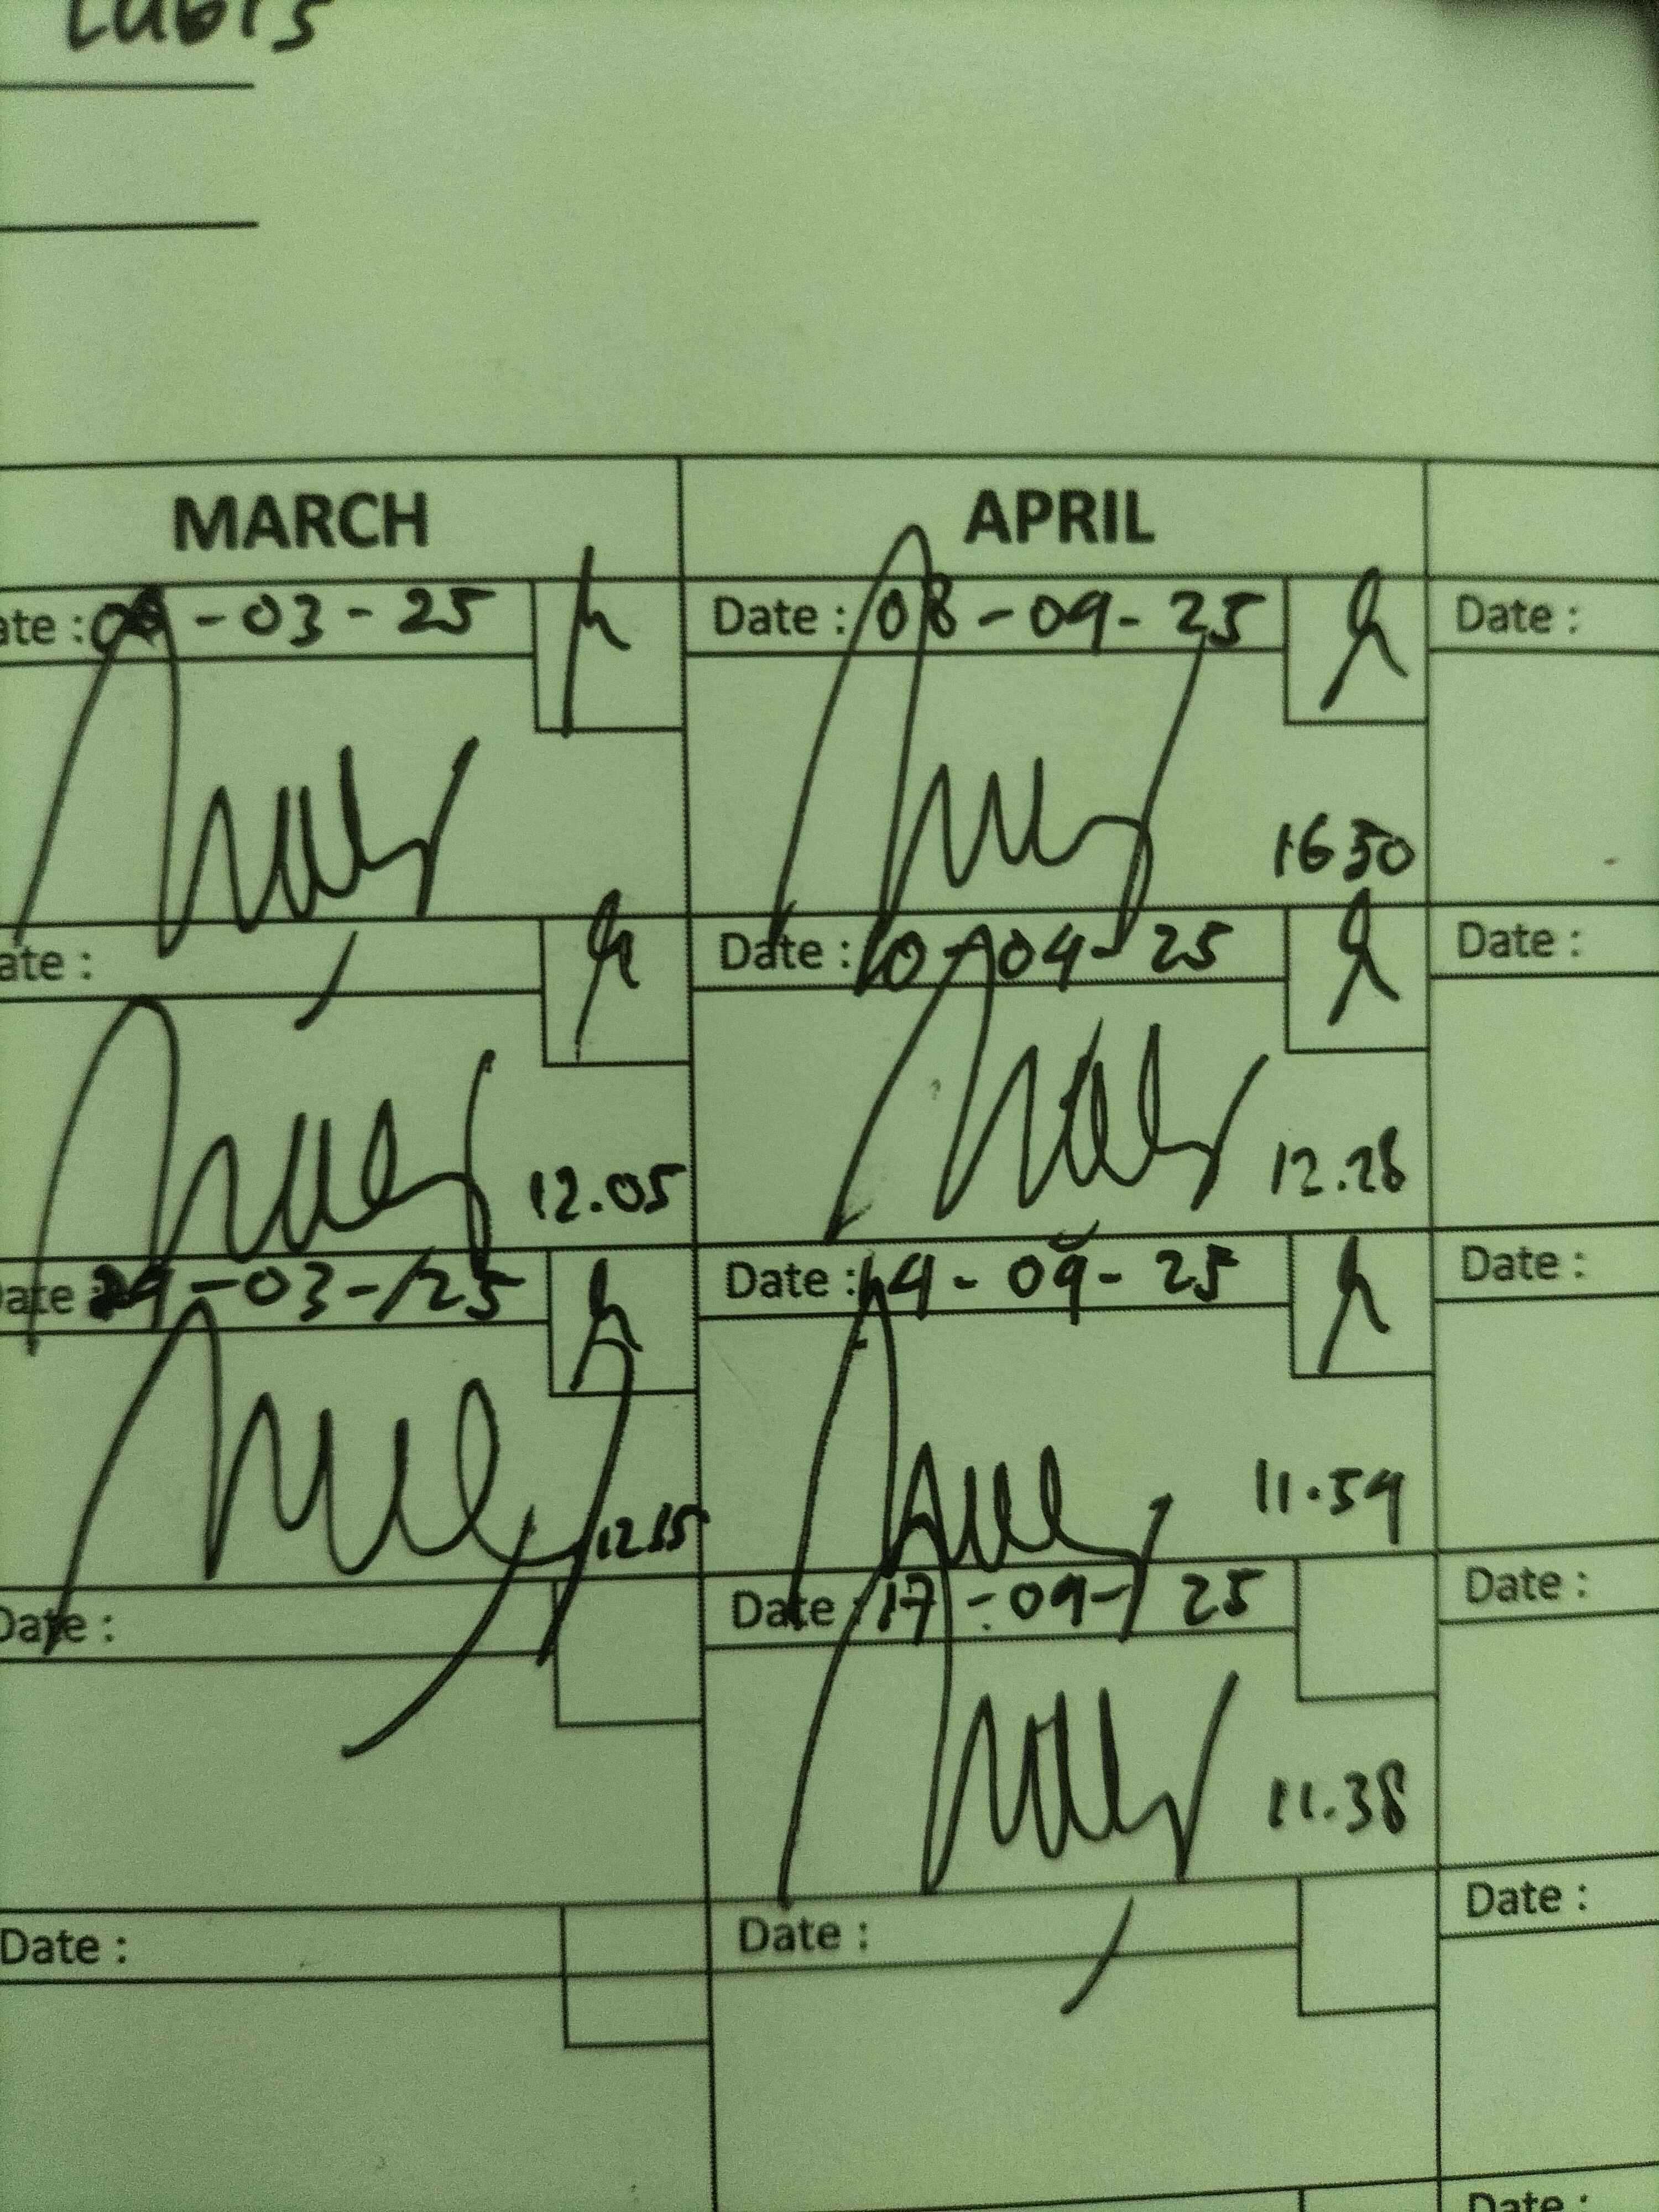 Lubis
MARCH
APRIL
ate : -03-25
Date : 08-04-25
Date :
16 30
ate :
Date : 10-04-25
Date :
12.05
12.28
ate 24-03-25
Date : 14-04-25
Date :
12 35
11.54
Date :
Date : 17-04-25
Date :
11.38
Date :
Date :
Date :
Date :